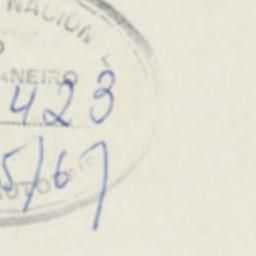 NACION
ANEIRO
423
5/67
AUTO